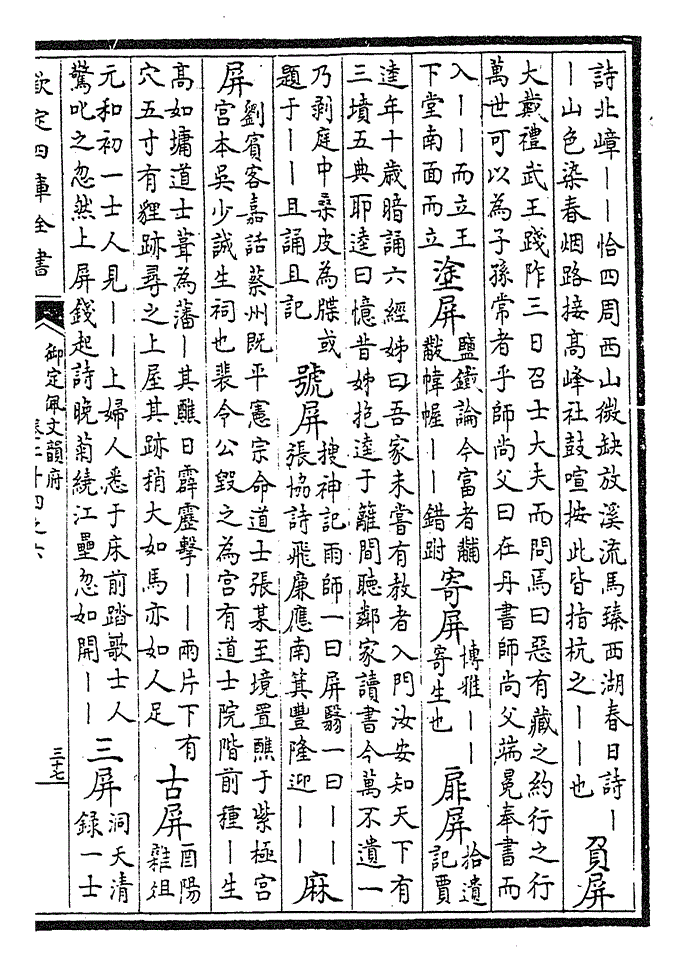 詩北嶂丨丨恰四周西山微缺放溪流馬臻西湖春日詩丨
丨山色染春烟路接髙峰社鼓喧按此皆指杭之丨丨也
負屏
大戴禮武王踐阼三日召士大夫而問焉曰惡有藏之約行之行
萬世可以為子孫常者乎師尚父曰在丹書師尚父端冕奉書而
入丨丨而立王
下堂南面而立
塗屏
鹽鐵論今富者黼
黻幃幄丨丨錯跗
寄屏
博雅丨丨
寄生也
扉屏
拾遺
記賈
逵年十歳暗誦六經姊曰吾家未嘗有教者入門汝安知天下有
三墳五典耶逵曰憶昔姊抱逵于籬間聴鄰家讀書今萬不遺一
乃剥庭中桑皮為牒或
題于丨丨且誦且記
號屏
搜神記雨師一曰屏翳一曰丨丨
張協詩飛廉應南箕豐隆迎丨丨
麻
屏
劉賓客嘉話蔡州既平憲宗命道士張某至境置醮于紫極宫
宫本吳少誠生祠也裴令公毁之為宫有道士院階前種丨生
髙如墉道士葺為藩丨其醮日霹靂擊丨丨兩片下有
穴五寸有貍跡尋之上屋其跡稍大如馬亦如人足
古屏
酉陽
雜俎
元和初一士人見丨丨上婦人悉于床前踏歌士人
驚叱之忽然上屏錢起詩晚菊繞江壘忽如開丨丨
三屏
洞天清
録一士
欽定四庫全書
御定佩文韻府
卷二十四之六
三十七